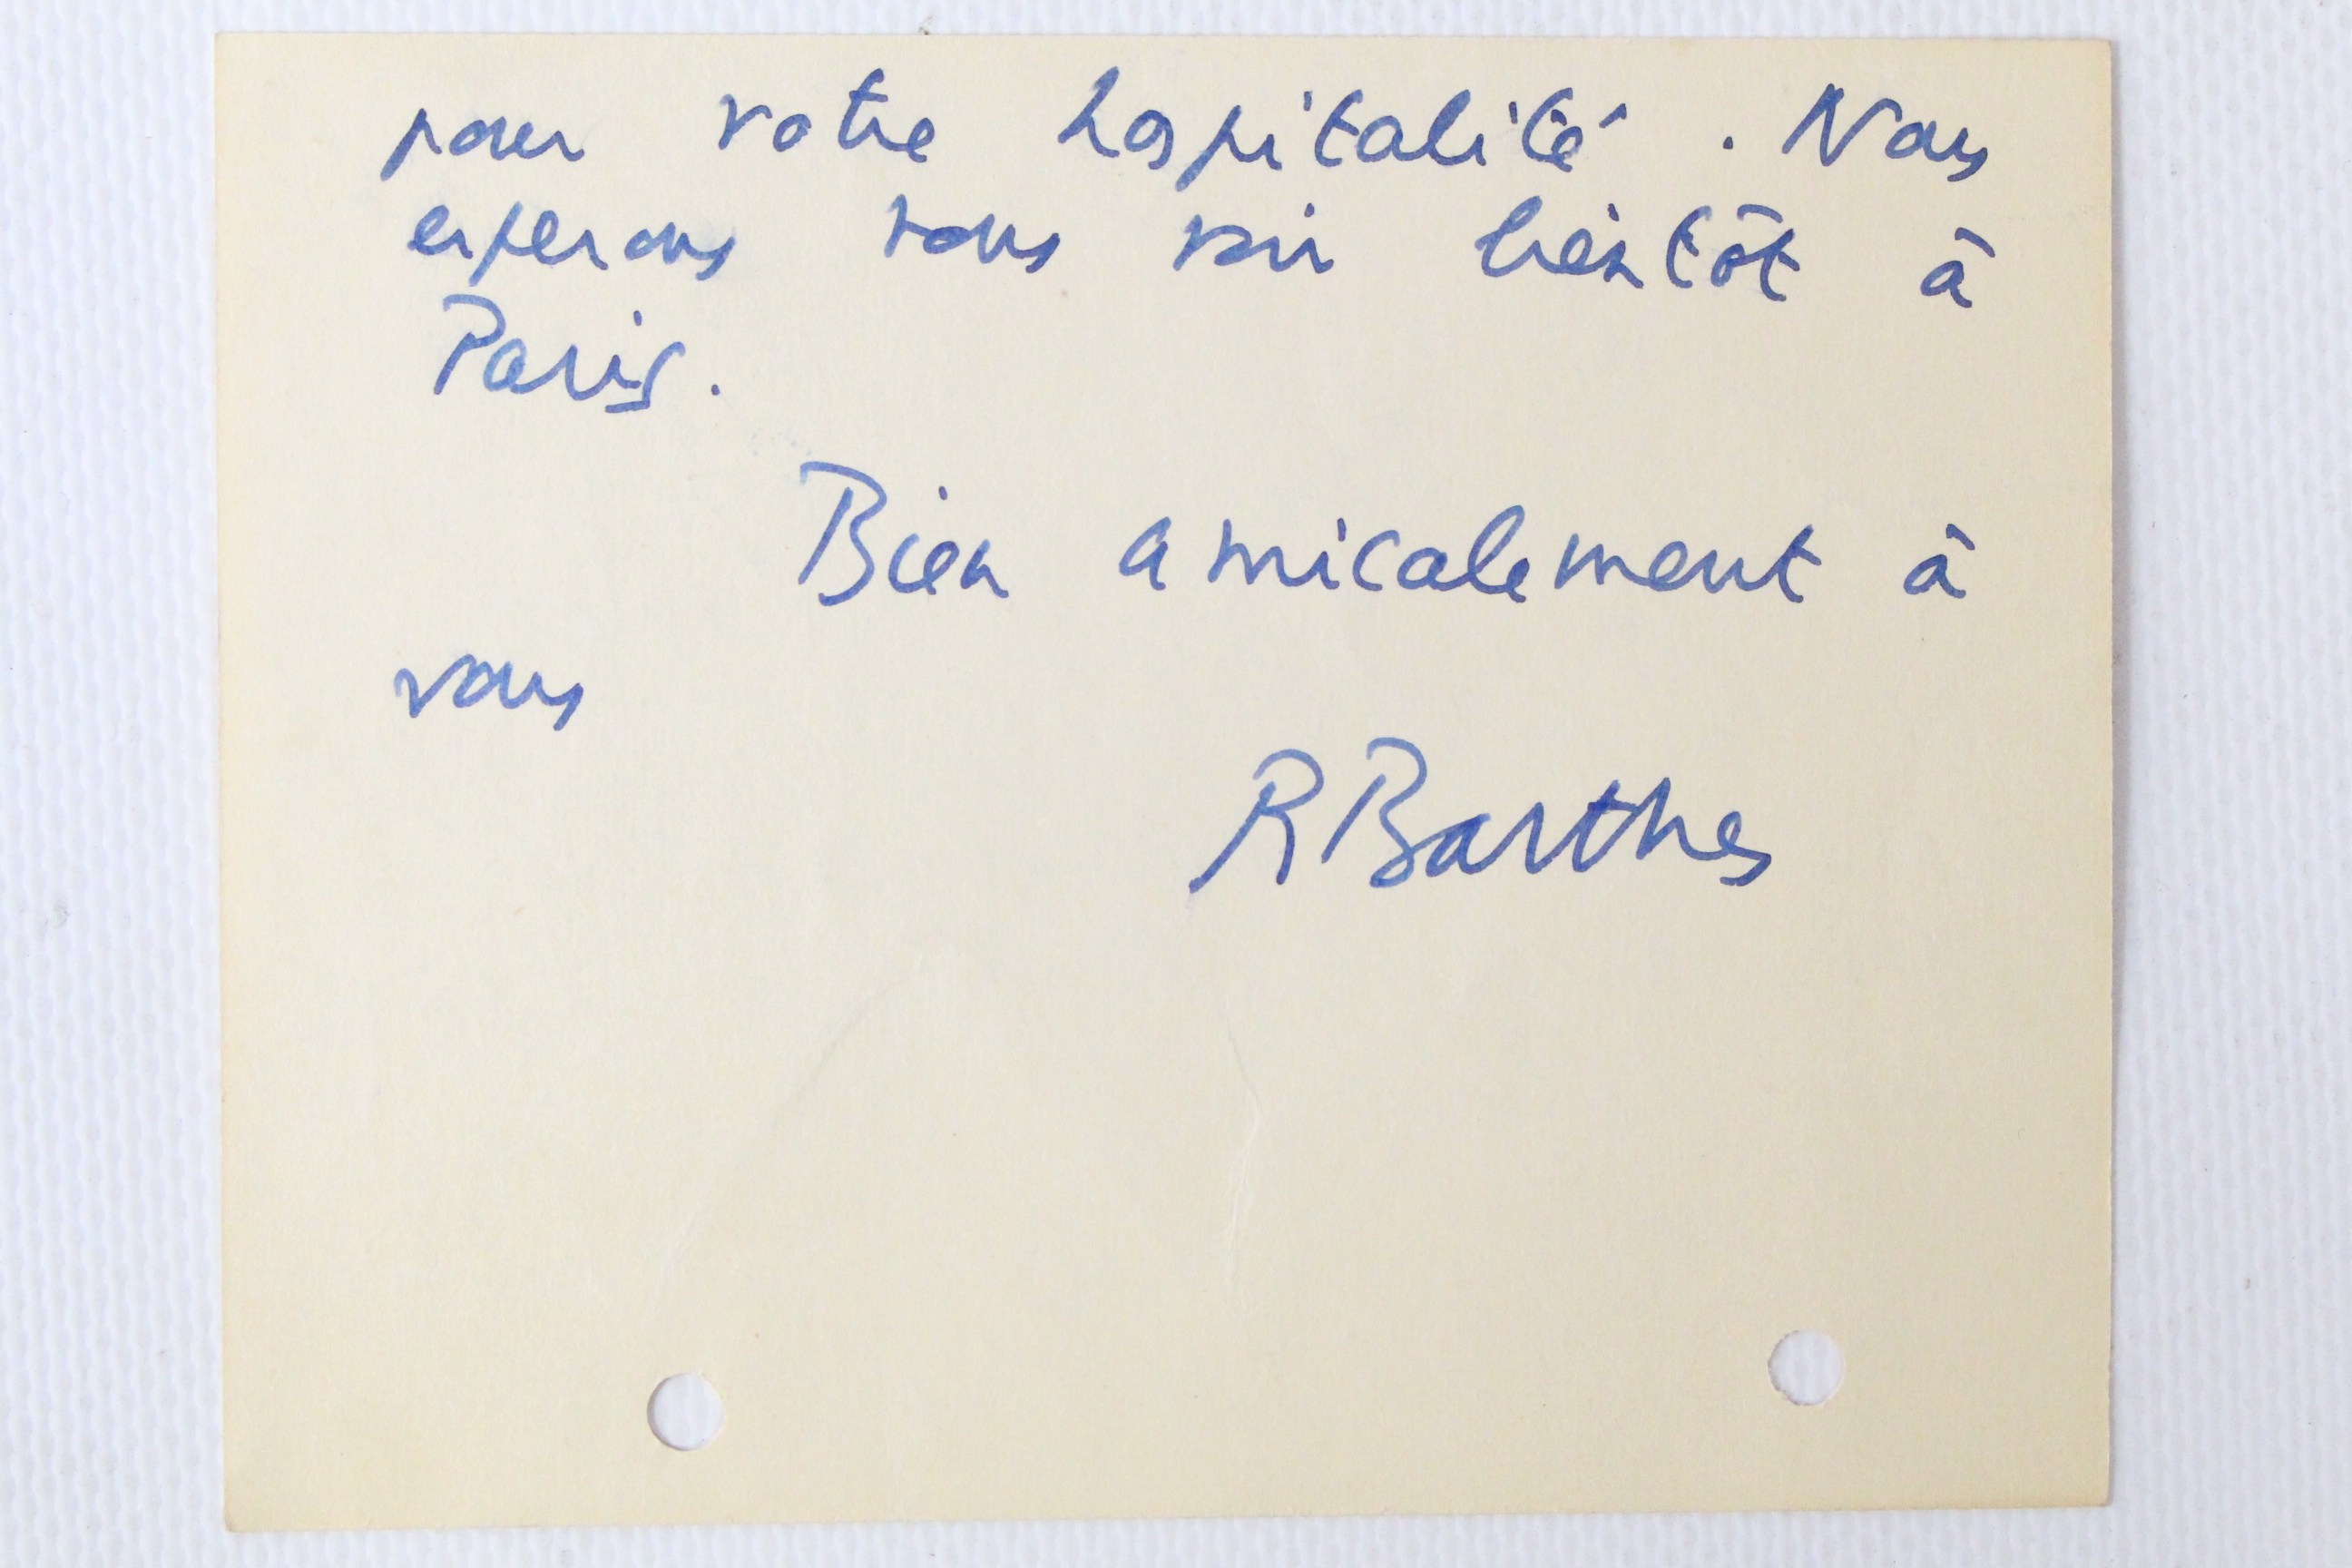 pour votre hospitalité. Nous
esperons vous voir bientôt à
Paris.
Bien amicalement à
vous
R Barthes